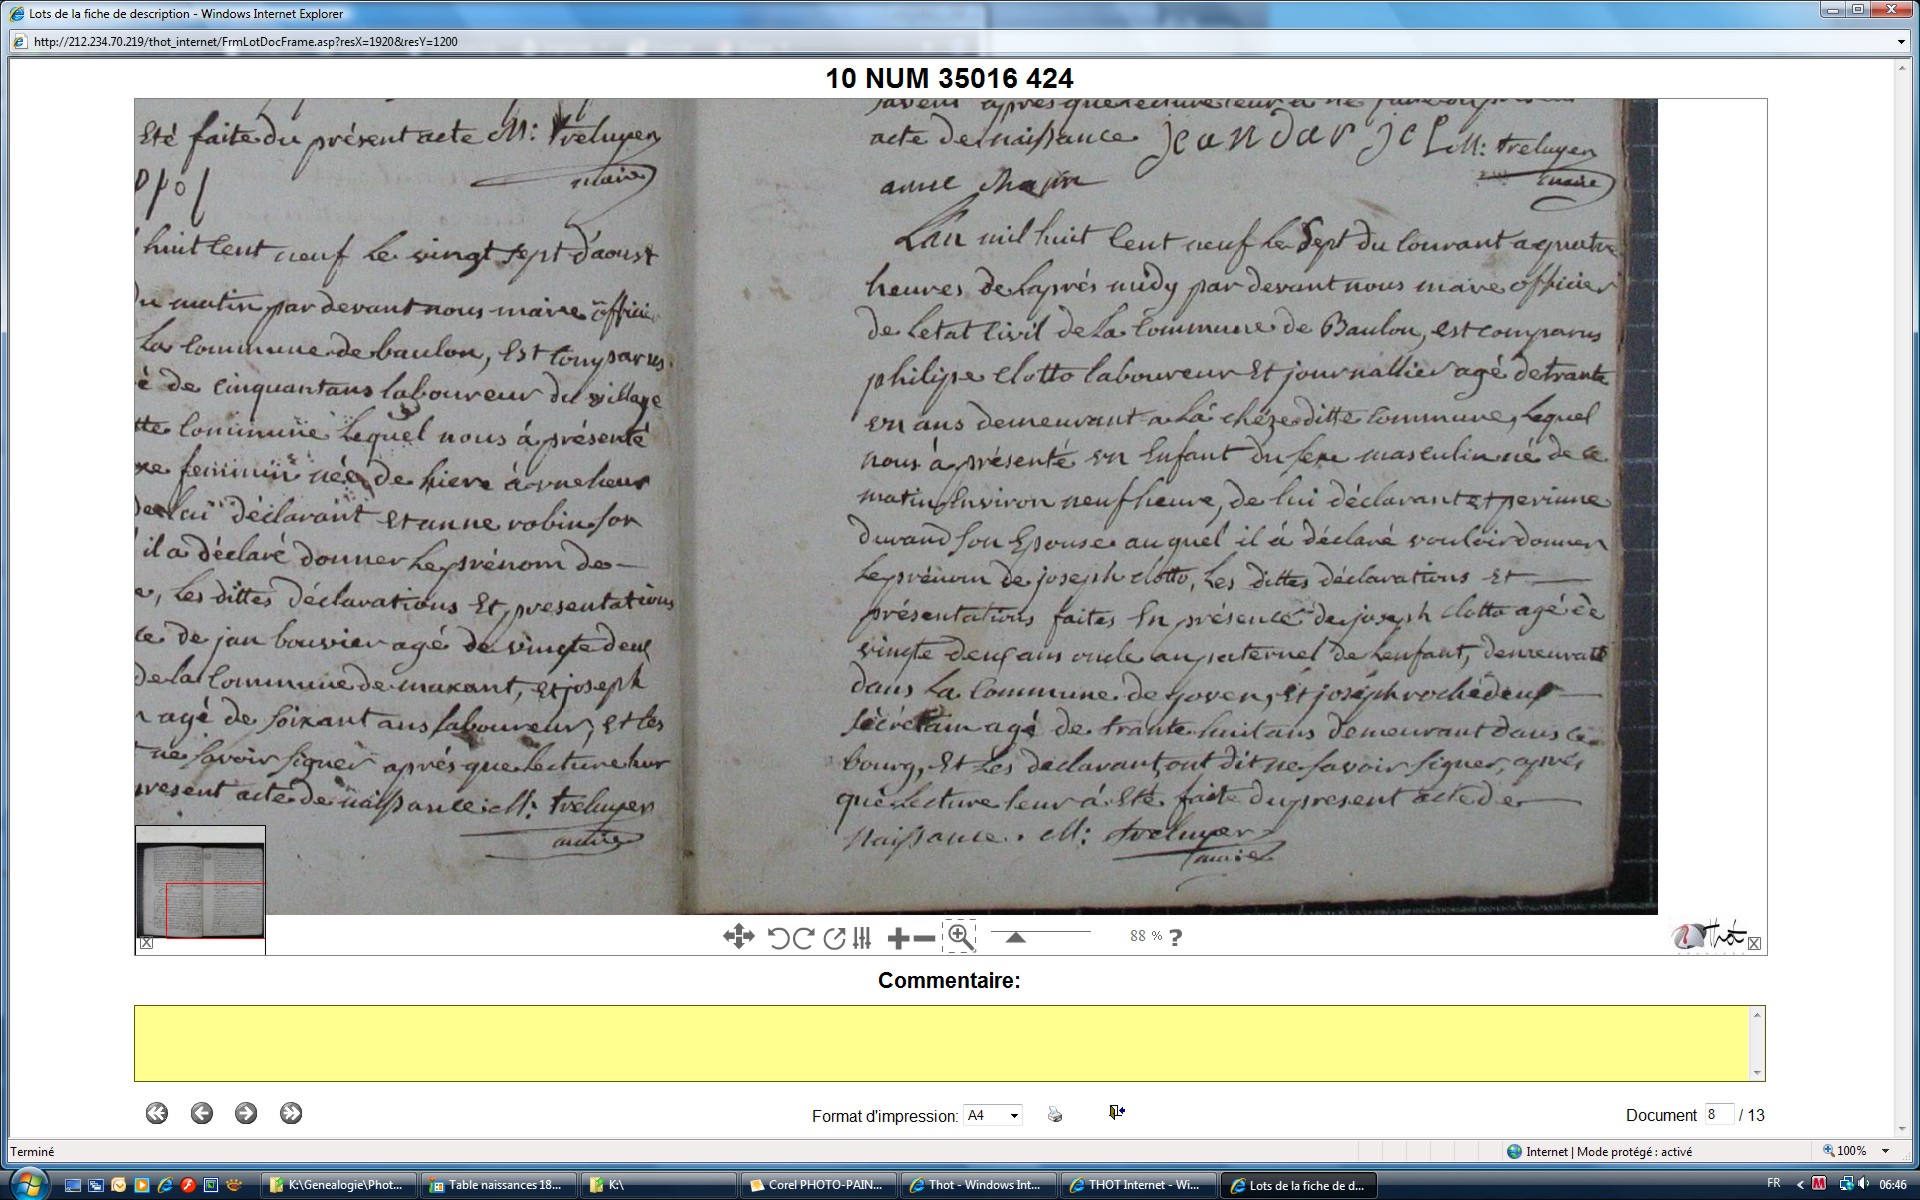 Lots de la fiche de description - Windows Internet Explorer
http://212.234.70.219/thot_internet/FrmLotDocFrame.asp?resX=1920&resY=1200
10 NUM 35016 424
Eté faite du présent acte M: Treluyer
maire
huit Cent neuf Le vingt sept d'aoust
du matin par devant nous maire officier
La Commune de baulon, Est Comparus
é de Cinquant ans laboureur du village
tte Commune Lequel nous á présenté
xe feminin née de hiere á une heur
de Lui déclarant Et anne robin son
il a déclaré donner Le prénom de
e, Les dittes déclarations Et presentations
ce de jan bouvier agé de vingte deux
de la Commune de maxant, Et joseph
n agé de soixant ans laboureur, Et les
ne savoir signer aprés que lecture leur
present acte de naissance M: Treluyer
maire
savent aprés que lecture leur a
acte de naissance jean dar jel M: Treluyer
anne maire
Lan mil huit Cent neuf Le Sept du Courant a quatre
heures de Laprés midy par devant nous maire officier
de Letat Civil de La Commune de Baulon, est comparus
philipe Clotto laboureur Et journallier agé de trante
un ans demeurant a La chéze ditte Commune, Lequel
nous á présenté un Enfant du sexe masculin né de ce
matin Environ neuf heure, de lui déclarant et perinne
durand son Epouse auquel il á déclaré vouloir donner
Le prénom de joseph clotto, Les dittes déclarations Et
présentations faites En présence de joseph Clotto agé de
vingte deux ans oncle au paternel de Lenfant, demeurant
dans La Commune de goven, Et joseph roche deux
sécrétain agé de trante huit ans demeurant dans ce
bourg, Et Les déclarant, ont dit ne savoir signer, aprés
que Lecture leur á Eté faite du present acte de
Naissance. M: Treluyer
maire
88 % ?
Thot
Commentaire:
Format d'impression: A4
Document 8 / 13
Terminé
Internet | Mode protégé : activé
100%
K:\Genealogie\Phot...
Table naissances 18...
K:\
Corel PHOTO-PAIN...
Thot - Windows Int...
THOT Internet - Wi...
Lots de la fiche de d...
FR
06:46